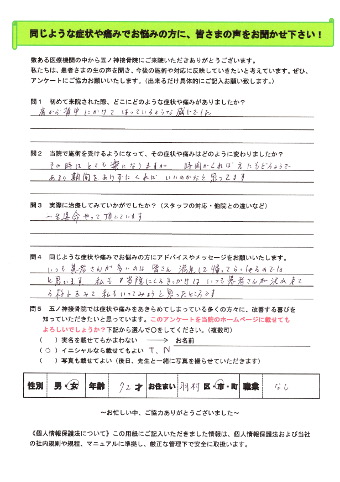 同じような症状や痛みでお悩みの方に、皆さまの声をお聞かせ下さい！
数ある医療機関の中から五ノ神接骨院にご来院いただきありがとうございます。
私たちは、患者さまの生の声を聞き、今後の施術や対応に反映していきたいと考えています。ぜひ、
アンケートにご協力お願いいたします。（出来るだけ具体的にご記入お願い致します。）
問１ 初めて来院された際、どこにどのような症状や痛みがありましたか？
肩から背中にかけてはっているような感じでした
問２ 当院で施術を受けるようになって、その症状や痛みはどのように変わりましたか？
その時はとても楽になりますが 時間がたてば
あまり期間をあけずにくれば いいのかなと思ってます
問３ 実際に治療してみていかがでしたか？（スタッフの対応・他院との違いなど）
一生懸命やって頂いています
問４ 同じような症状や痛みでお悩みの方にアドバイスやメッセージをお願いいたします。
いつも患者さんが多いのは 皆さん 満足して帰ってらっしゃるのでは
と思います 私も 当院にしたきっかけは いつも患者さんが沢山来て
私もいってみようと思ったところです
問５ 五ノ神接骨院では症状や痛みをあきらめてしまっている多くの方々に、改善する喜びを
知っていただきたいと思っています。このアンケートを当院のホームページに載せても
よろしいでしょうか？下記から選んで○をしてください。（複数可）
（ ）実名を載せてもかまわない → お名前
（○）イニシャルなら載せてもよい T．N
（ ）写真も載せてよい（後日、先生と一緒に写真を撮らせていただきます）
性別 男・女 年齢 72才 お住まい 羽村 区・市・町 職業 なし
～お忙しい中、ご協力ありがとうございました～
《個人情報保護法について》この用紙にご記入いただきました情報は、個人情報保護法および当社
の社内規則や規程、マニュアルに準拠し、厳正な管理下で安全に取扱います。